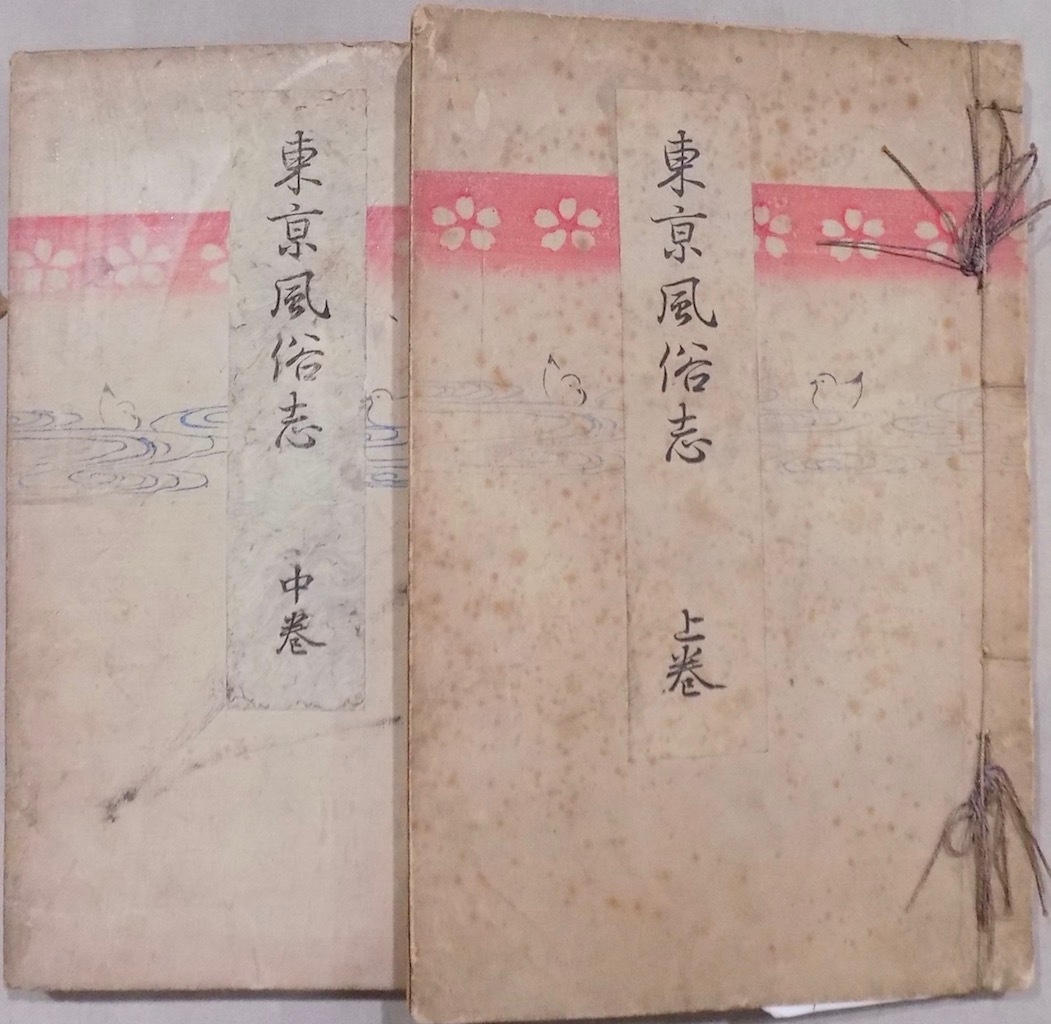 東亰風俗志
上巻
東亰風俗志
中巻